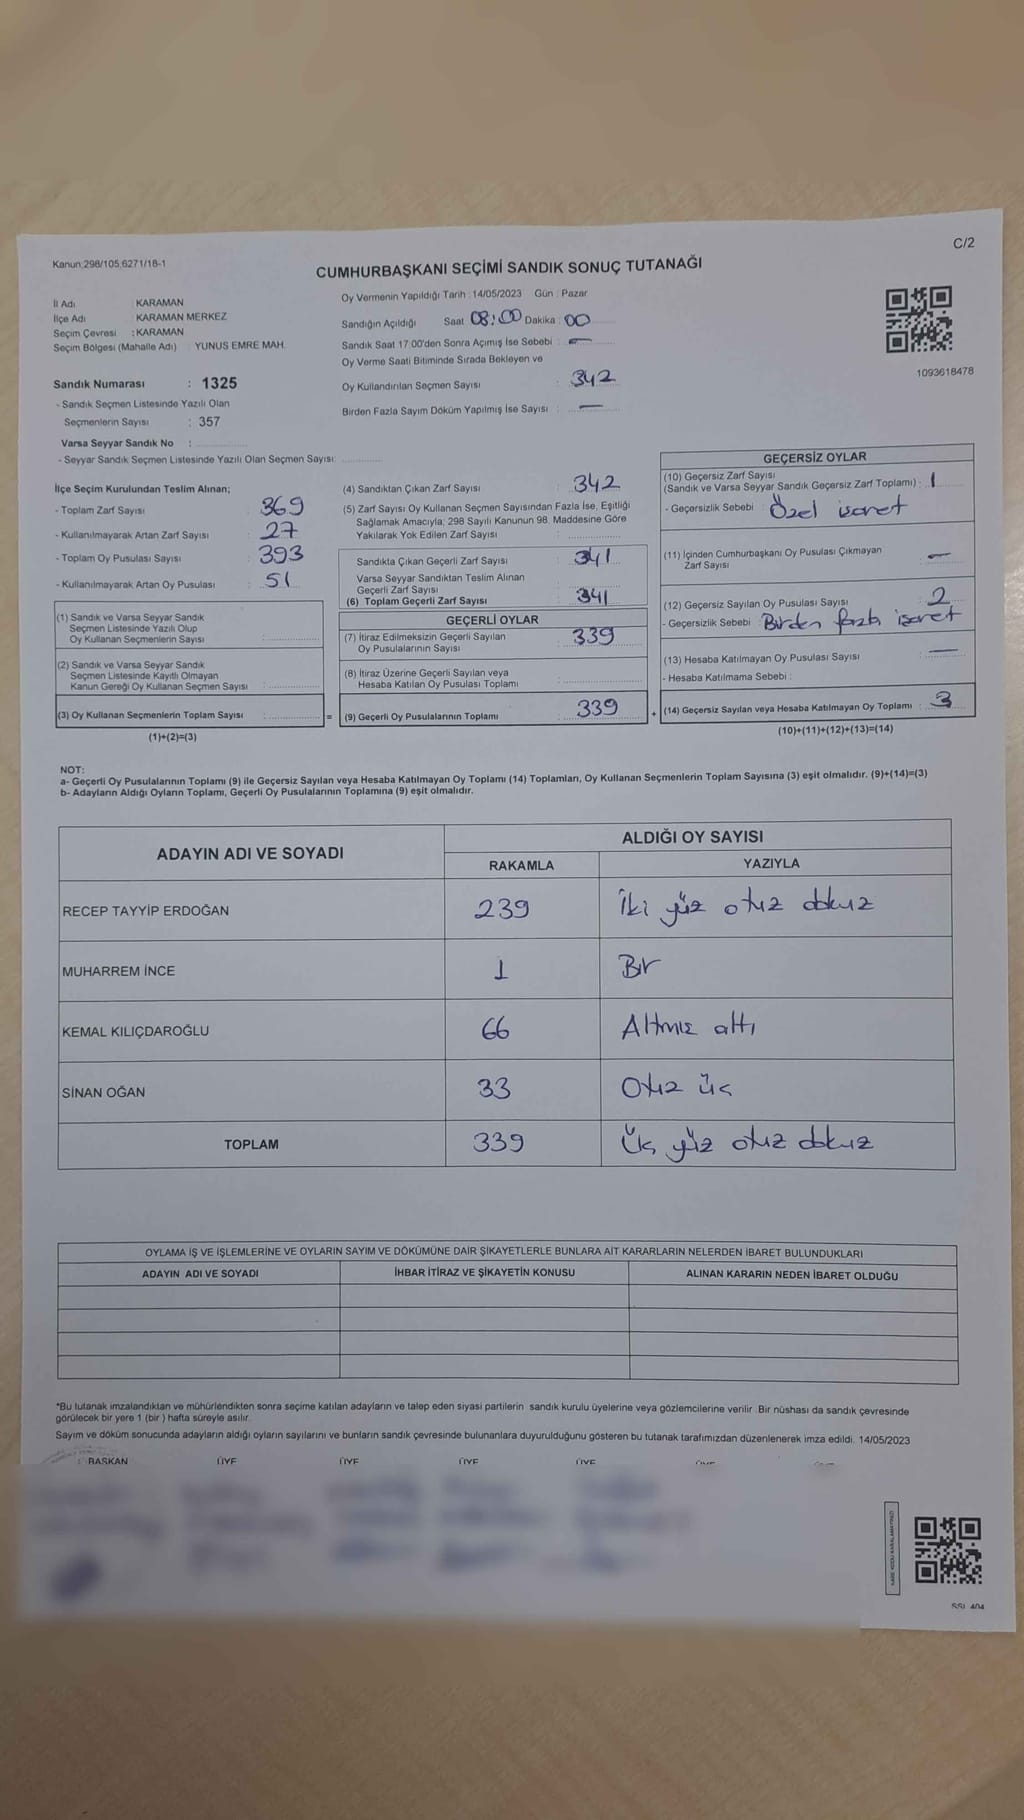 C/2
Kanun:298/105,6271/18-1
CUMHURBAŞKANI SEÇİMİ SANDIK SONUÇ TUTANAĞI
İl Adı : KARAMAN
İlçe Adı : KARAMAN MERKEZ
Seçim Çevresi : KARAMAN
Seçim Bölgesi (Mahalle Adı) : YUNUS EMRE MAH.
Sandık Numarası : 1325
- Sandık Seçmen Listesinde Yazılı Olan
Seçmenlerin Sayısı : 357
Varsa Seyyar Sandık No :
- Seyyar Sandık Seçmen Listesinde Yazılı Olan Seçmen Sayısı:
Oy Vermenin Yapıldığı Tarih :14/05/2023 Gün : Pazar
Sandığın Açıldığı Saat 08:00 Dakika : 00
Sandık Saat 17:00'den Sonra Açılmış İse Sebebi : —
Oy Verme Saati Bitiminde Sırada Bekleyen ve
Oy Kullandırılan Seçmen Sayısı : 342
Birden Fazla Sayım Döküm Yapılmış İse Sayısı : —
1093618478
İlçe Seçim Kurulundan Teslim Alınan;
- Toplam Zarf Sayısı : 369
- Kullanılmayarak Artan Zarf Sayısı : 27
- Toplam Oy Pusulası Sayısı : 393
- Kullanılmayarak Artan Oy Pusulası : 51
(1) Sandık ve Varsa Seyyar Sandık
Seçmen Listesinde Yazılı Olup
Oy Kullanan Seçmenlerin Sayısı :
(2) Sandık ve Varsa Seyyar Sandık
Seçmen Listesinde Kayıtlı Olmayan
Kanun Gereği Oy Kullanan Seçmen Sayısı :
(3) Oy Kullanan Seçmenlerin Toplam Sayısı :
(1)+(2)=(3)
=
(4) Sandıktan Çıkan Zarf Sayısı : 342
(5) Zarf Sayısı Oy Kullanan Seçmen Sayısından Fazla İse, Eşitliği
Sağlamak Amacıyla; 298 Sayılı Kanunun 98. Maddesine Göre
Yakılarak Yok Edilen Zarf Sayısı :
Sandıkta Çıkan Geçerli Zarf Sayısı : 341
Varsa Seyyar Sandıktan Teslim Alınan
Geçerli Zarf Sayısı :
(6) Toplam Geçerli Zarf Sayısı : 341
GEÇERLİ OYLAR
(7) İtiraz Edilmeksizin Geçerli Sayılan
Oy Pusulalarının Sayısı : 339
(8) İtiraz Üzerine Geçerli Sayılan veya
Hesaba Katılan Oy Pusulası Toplamı :
(9) Geçerli Oy Pusulalarının Toplamı : 339
+
GEÇERSİZ OYLAR
(10) Geçersiz Zarf Sayısı
(Sandık ve Varsa Seyyar Sandık Geçersiz Zarf Toplamı) : 1
- Geçersizlik Sebebi : Özel işaret
(11) İçinden Cumhurbaşkanı Oy Pusulası Çıkmayan
Zarf Sayısı : —
(12) Geçersiz Sayılan Oy Pusulası Sayısı : 2
- Geçersizlik Sebebi : Birden fazla işaret
(13) Hesaba Katılmayan Oy Pusulası Sayısı : —
- Hesaba Katılmama Sebebi :
(14) Geçersiz Sayılan veya Hesaba Katılmayan Oy Toplamı : 3
(10)+(11)+(12)+(13)=(14)
NOT:
a- Geçerli Oy Pusulalarının Toplamı (9) ile Geçersiz Sayılan veya Hesaba Katılmayan Oy Toplamı (14) Toplamları, Oy Kullanan Seçmenlerin Toplam Sayısına (3) eşit olmalıdır. (9)+(14)=(3)
b- Adayların Aldığı Oyların Toplamı, Geçerli Oy Pusulalarının Toplamına (9) eşit olmalıdır.
ADAYIN ADI VE SOYADI
ALDIĞI OY SAYISI
RAKAMLA YAZIYLA
RECEP TAYYİP ERDOĞAN 239 İki yüz otuz dokuz
MUHARREM İNCE 1 Bir
KEMAL KILIÇDAROĞLU 66 Altmış altı
SİNAN OĞAN 33 Otuz üç
TOPLAM 339 Üç yüz otuz dokuz
OYLAMA İŞ VE İŞLEMLERİNE VE OYLARIN SAYIM VE DÖKÜMÜNE DAİR ŞİKAYETLERLE BUNLARA AİT KARARLARIN NELERDEN İBARET BULUNDUKLARI
ADAYIN ADI VE SOYADI İHBAR İTİRAZ VE ŞİKAYETİN KONUSU ALINAN KARARIN NEDEN İBARET OLDUĞU
*Bu tutanak imzalandıktan ve mühürlendikten sonra seçime katılan adayların ve talep eden siyasi partilerin sandık kurulu üyelerine veya gözlemcilerine verilir. Bir nüshası da sandık çevresinde
görülecek bir yere 1 (bir ) hafta süreyle asılır.
Sayım ve döküm sonucunda adayların aldığı oyların sayılarını ve bunların sandık çevresinde bulunanlara duyurulduğunu gösteren bu tutanak tarafımızdan düzenlenerek imza edildi. 14/05/2023
BAŞKAN ÜYE ÜYE ÜYE ÜYE